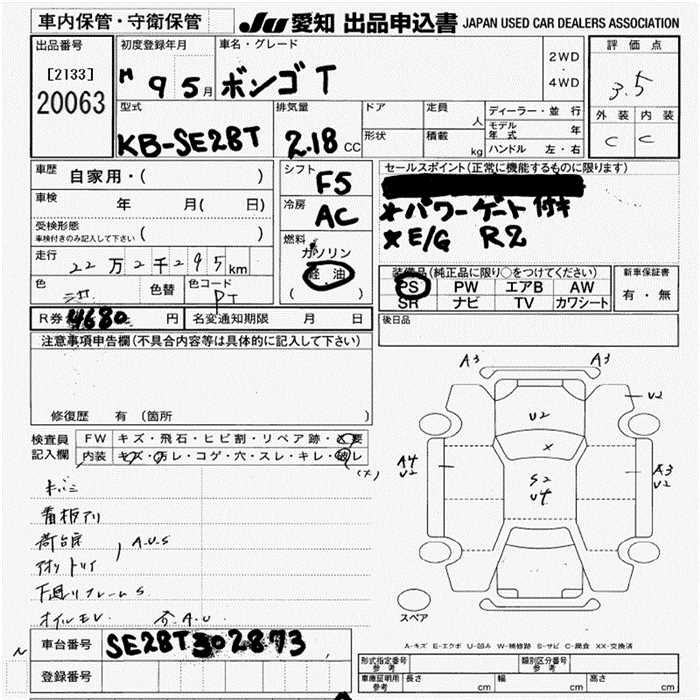 車内保管・守衛保管
JU 愛知 出品申込書 JAPAN USED CAR DEALERS ASSOCIATION
出品番号
[2133]
20063
初度登録年月
9 5月
車名・グレード
ボンゴ T
2WD
・
4WD
評価点
3.5
外装 内装
C C
型式
KB-SE28T
排気量
2.18 CC
ドア
形状
定員 人
積載 kg
ディーラー・並行
モデル年式 年
ハンドル 左・右
車歴 自家用・( )
車検 年 月( 日)
受検形態 ( )
車検付きのみ記入して下さい
走行 22万2千295km
色
色替
色コード
PT
シフト
F5
冷房
AC
燃料
ガソリン
軽油
( )
セールスポイント(正常に機能するものに限ります)
*パワーゲート付き
*E/G R2
装備品(純正品に限り○をつけてください)
PS PW エアB AW
SR ナビ TV カワシート
新車保証書
有・無
R券 4680 円 名変通知期限 月 日
後日品
注意事項申告欄(不具合内容等は具体的に記入して下さい)
修復歴 有(箇所
検査員
記入欄
FW キズ・飛石・ヒビ割・リペア跡・×要
内装 キズ・コゲ・穴・スレ・キレ・破レ
(x)
キバミ
看板アリ
荷台床
アオリ トリイ
A.U.S
下廻リフレームS
A3 A3
U2
U2
×
A4
U2
S2
U4
A3
U2
スペア
A-キズ E-エクボ U-凹み W-補修跡 S-サビ C-腐食 XX-交換済
車台番号 SE28T302873
登録番号
形式指定番号
参考
類別区分番号
参考
車庫証明用
参考
長さ cm 幅 cm 高さ cm